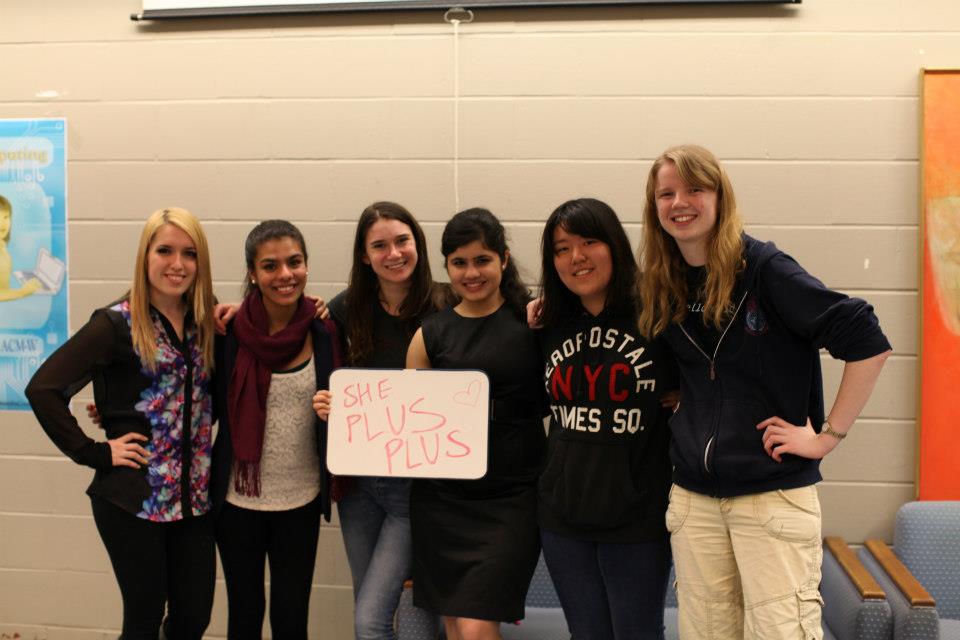 puting
ACM-W
SHE
PLUS
PLUS
AEROPOSTALE
NYC
TIMES SQ.